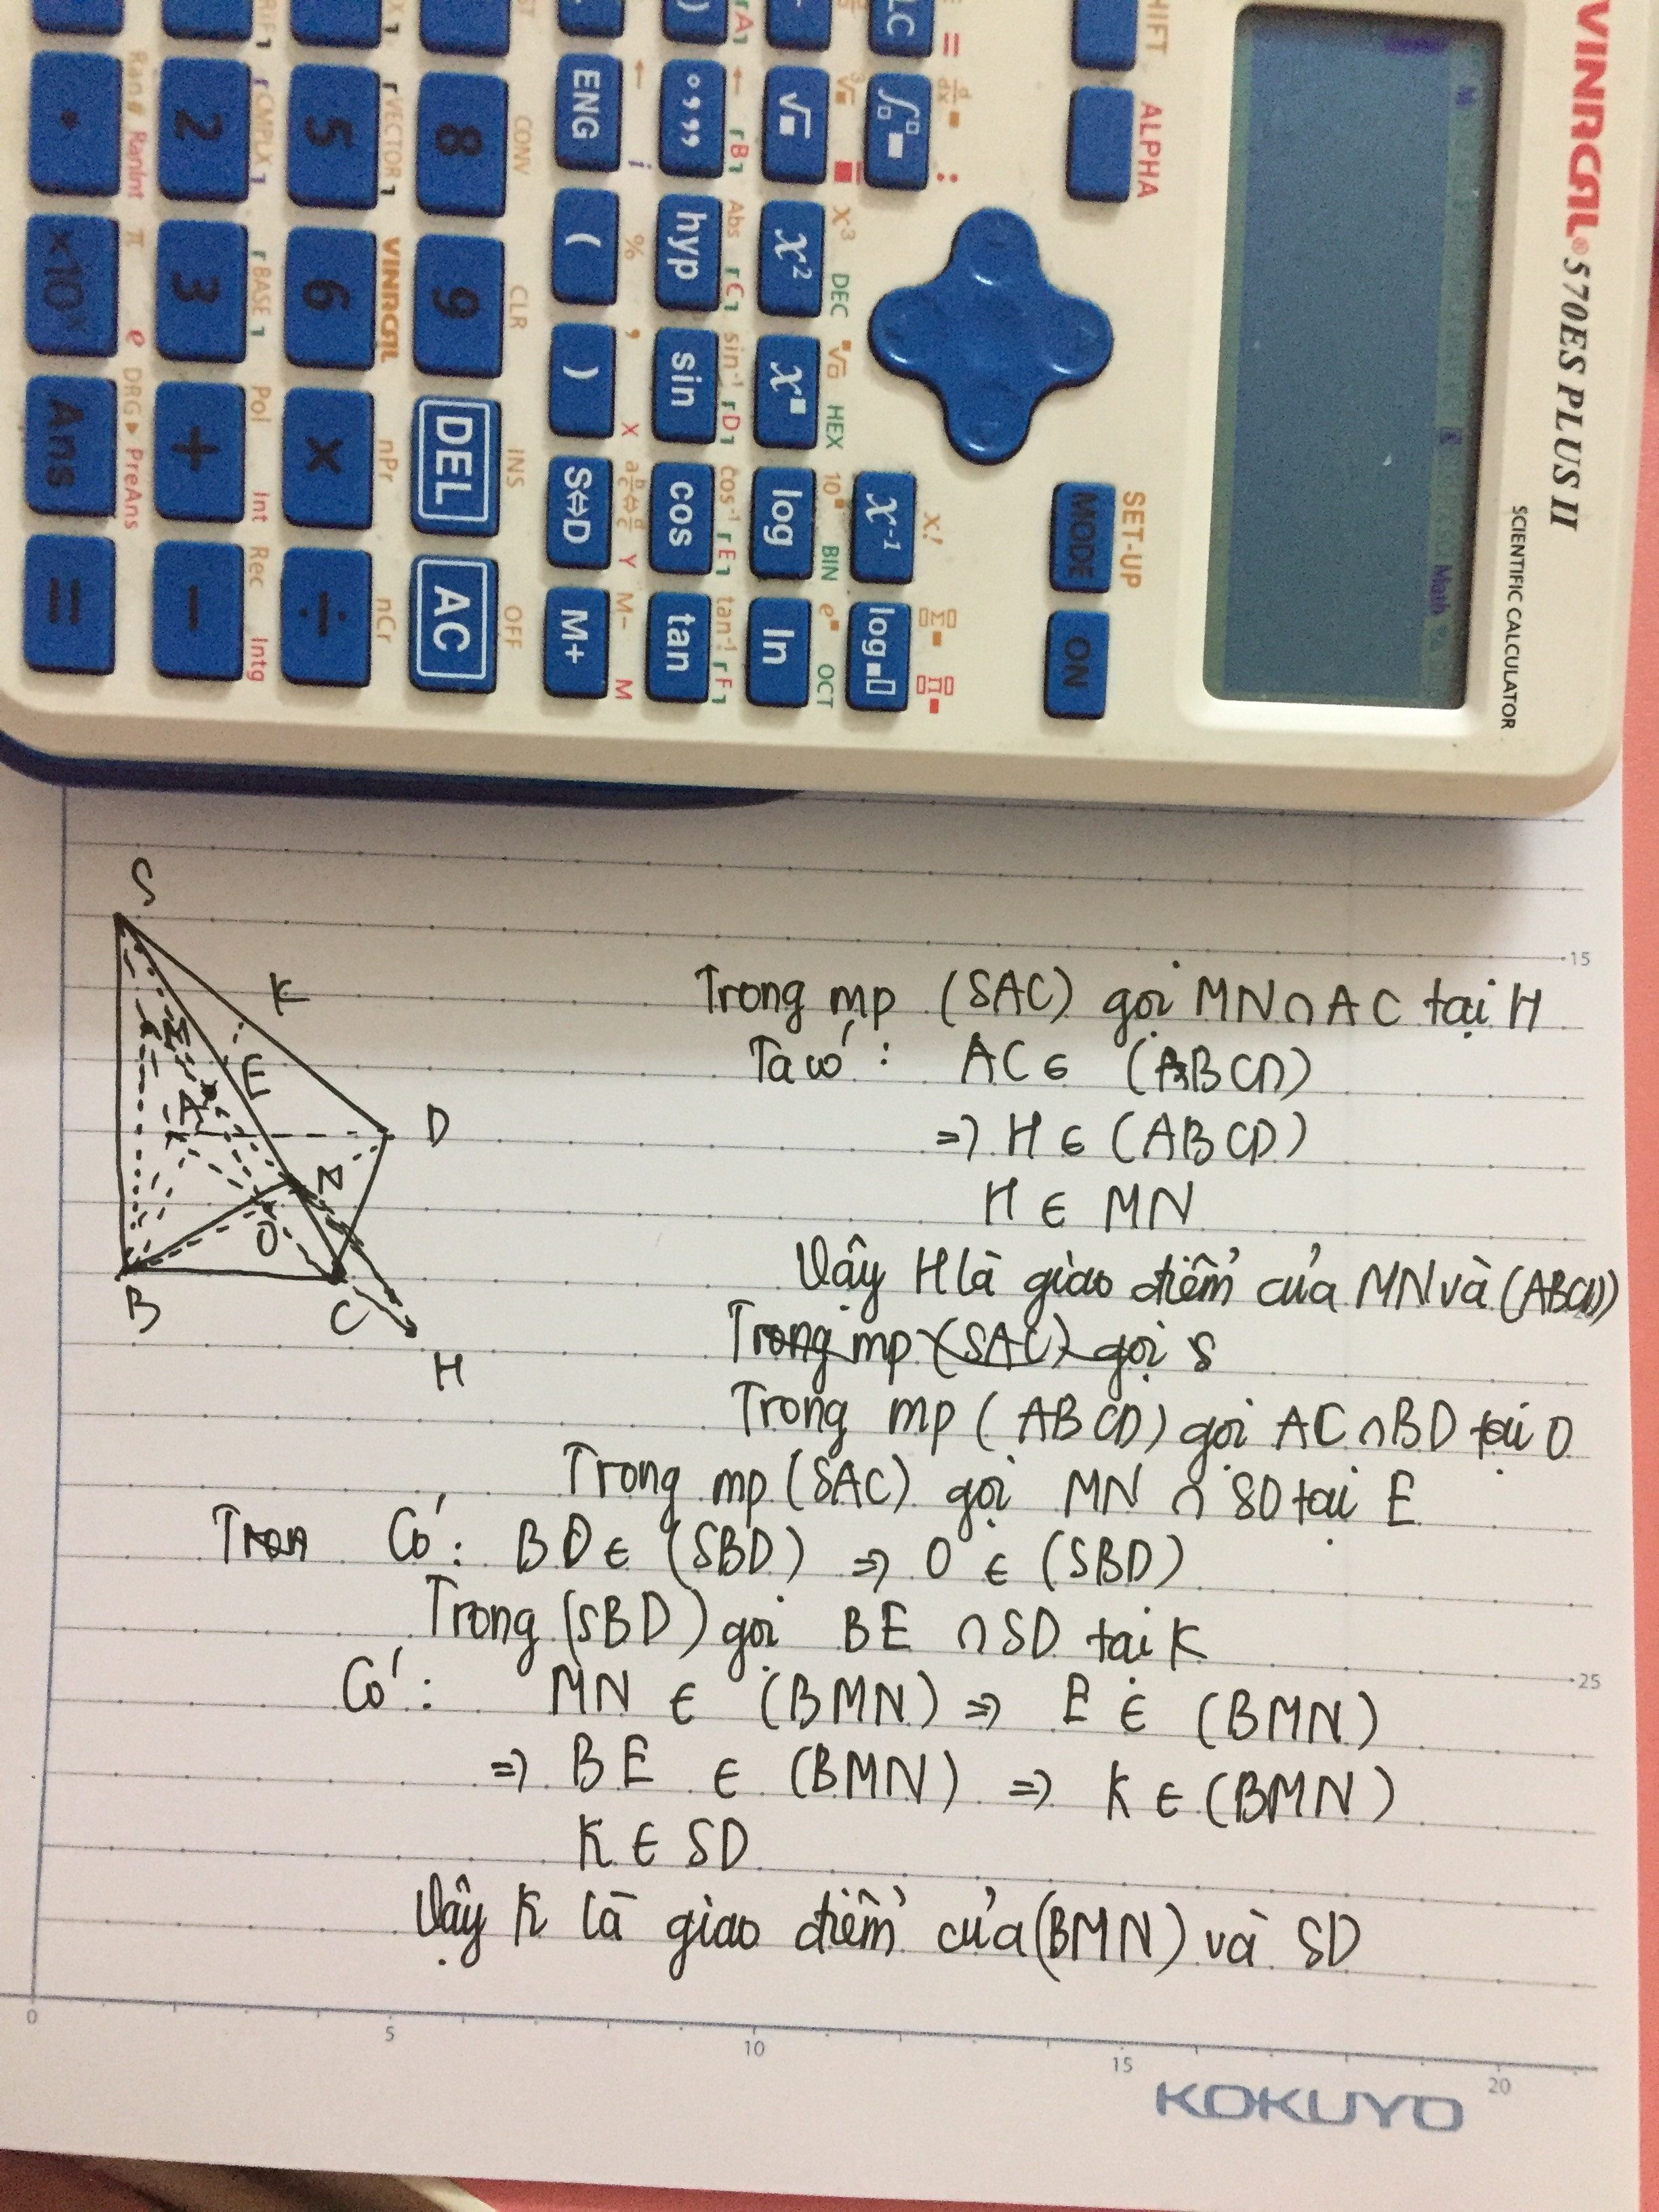 VINACAL® 570ES PLUS II
SCIENTIFIC CALCULATOR
SHIFT
ALPHA
SET-UP
MODE
ON
x!
x⁻¹
log
x³
DEC
HEX
BIN
OCT
x²
log
ln
Abs
sin⁻¹
cos⁻¹
tan⁻¹
hyp
sin
cos
tan
ENG
(
)
S⇔D
M+
%
,
X
Y
M-
M
CONV
CLR
INS
OFF
8
9
DEL
AC
VECTOR
VINACAL
nPr
nCr
5
6
×
÷
CMPLX
BASE
Pol
Int
Rec
Intg
2
3
+
−
Ran#
RanInt
π
e
DRG▸
PreAns
•
×10ˣ
Ans
=
Math
S
K
E
M
A
D
N
O
B
C
H
15
Trong mp (SAC) gọi MN∩AC tại H
Ta có : AC ∈ (ABCD)
=> H ∈ (ABCD)
H ∈ MN
Vậy H là giao điểm của MN và (ABCD)
Trong mp (SAC) gọi S
Trong mp (ABCD) gọi AC∩BD tại O
Trong mp (SAC) gọi MN ∩ SO tại E
Có : BD ∈ (SBD) => O ∈ (SBD)
Trong (SBD) gọi BE ∩ SD tại K
25
Có : MN ∈ (BMN) => E ∈ (BMN)
=> BE ∈ (BMN) => K ∈ (BMN)
K ∈ SD
Vậy K là giao điểm của (BMN) và SD
0
5
10
15
20
KOKUYO